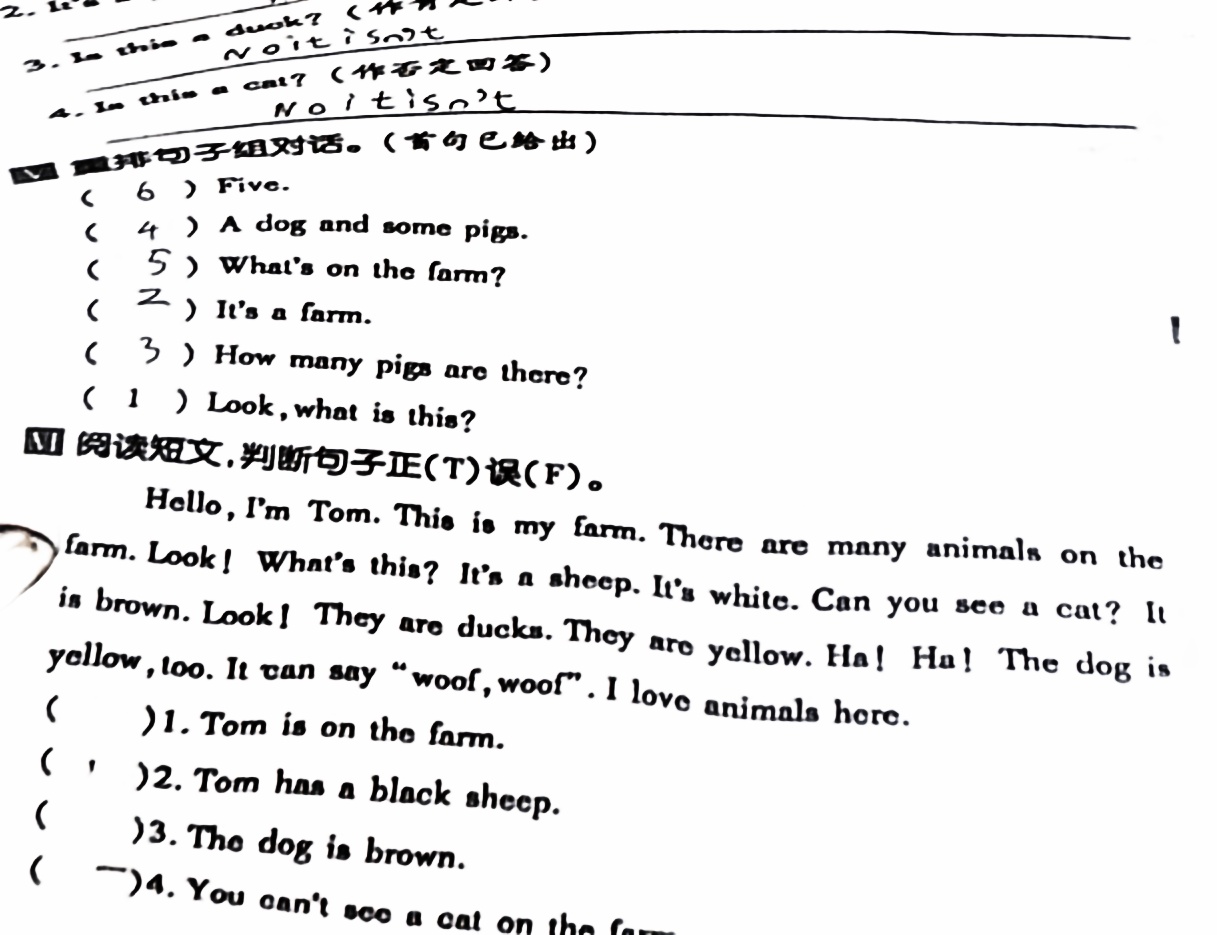 2. It's a
3. Is this a duck? (作否定回答)
No it isn't
4. Is this a cat? (作否定回答)
No it isn't
Ⅴ 重排句子组对话。(首句已给出)
( 6 ) Five.
( 4 ) A dog and some pigs.
( 5 ) What's on the farm?
( 2 ) It's a farm.
( 3 ) How many pigs are there?
( 1 ) Look, what is this?
Ⅵ 阅读短文,判断句子正(T)误(F)。
Hello, I'm Tom. This is my farm. There are many animals on the
farm. Look! What's this? It's a sheep. It's white. Can you see a cat? It
is brown. Look! They are ducks. They are yellow. Ha! Ha! The dog is
yellow, too. It can say “woof, woof”. I love animals here.
( )1. Tom is on the farm.
( )2. Tom has a black sheep.
( )3. The dog is brown.
( )4. You can't see a cat on the farm